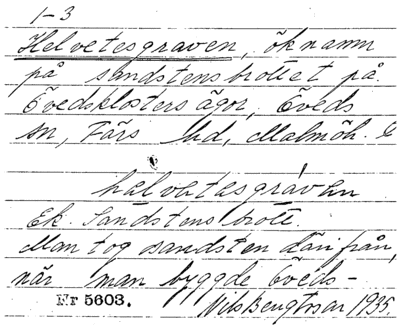 1-3
Helvetesgraven, öknamn
på sandstensbrottet på
Övedsklosters ägor, Öveds
sn, Färs hd, Malmöh.
helvetesgraven
Ek. Sandstensbrott.
Man tog sandsten därifrån,
när man byggde Öveds-
Nr 5603. Nils Bengtsson 1935.